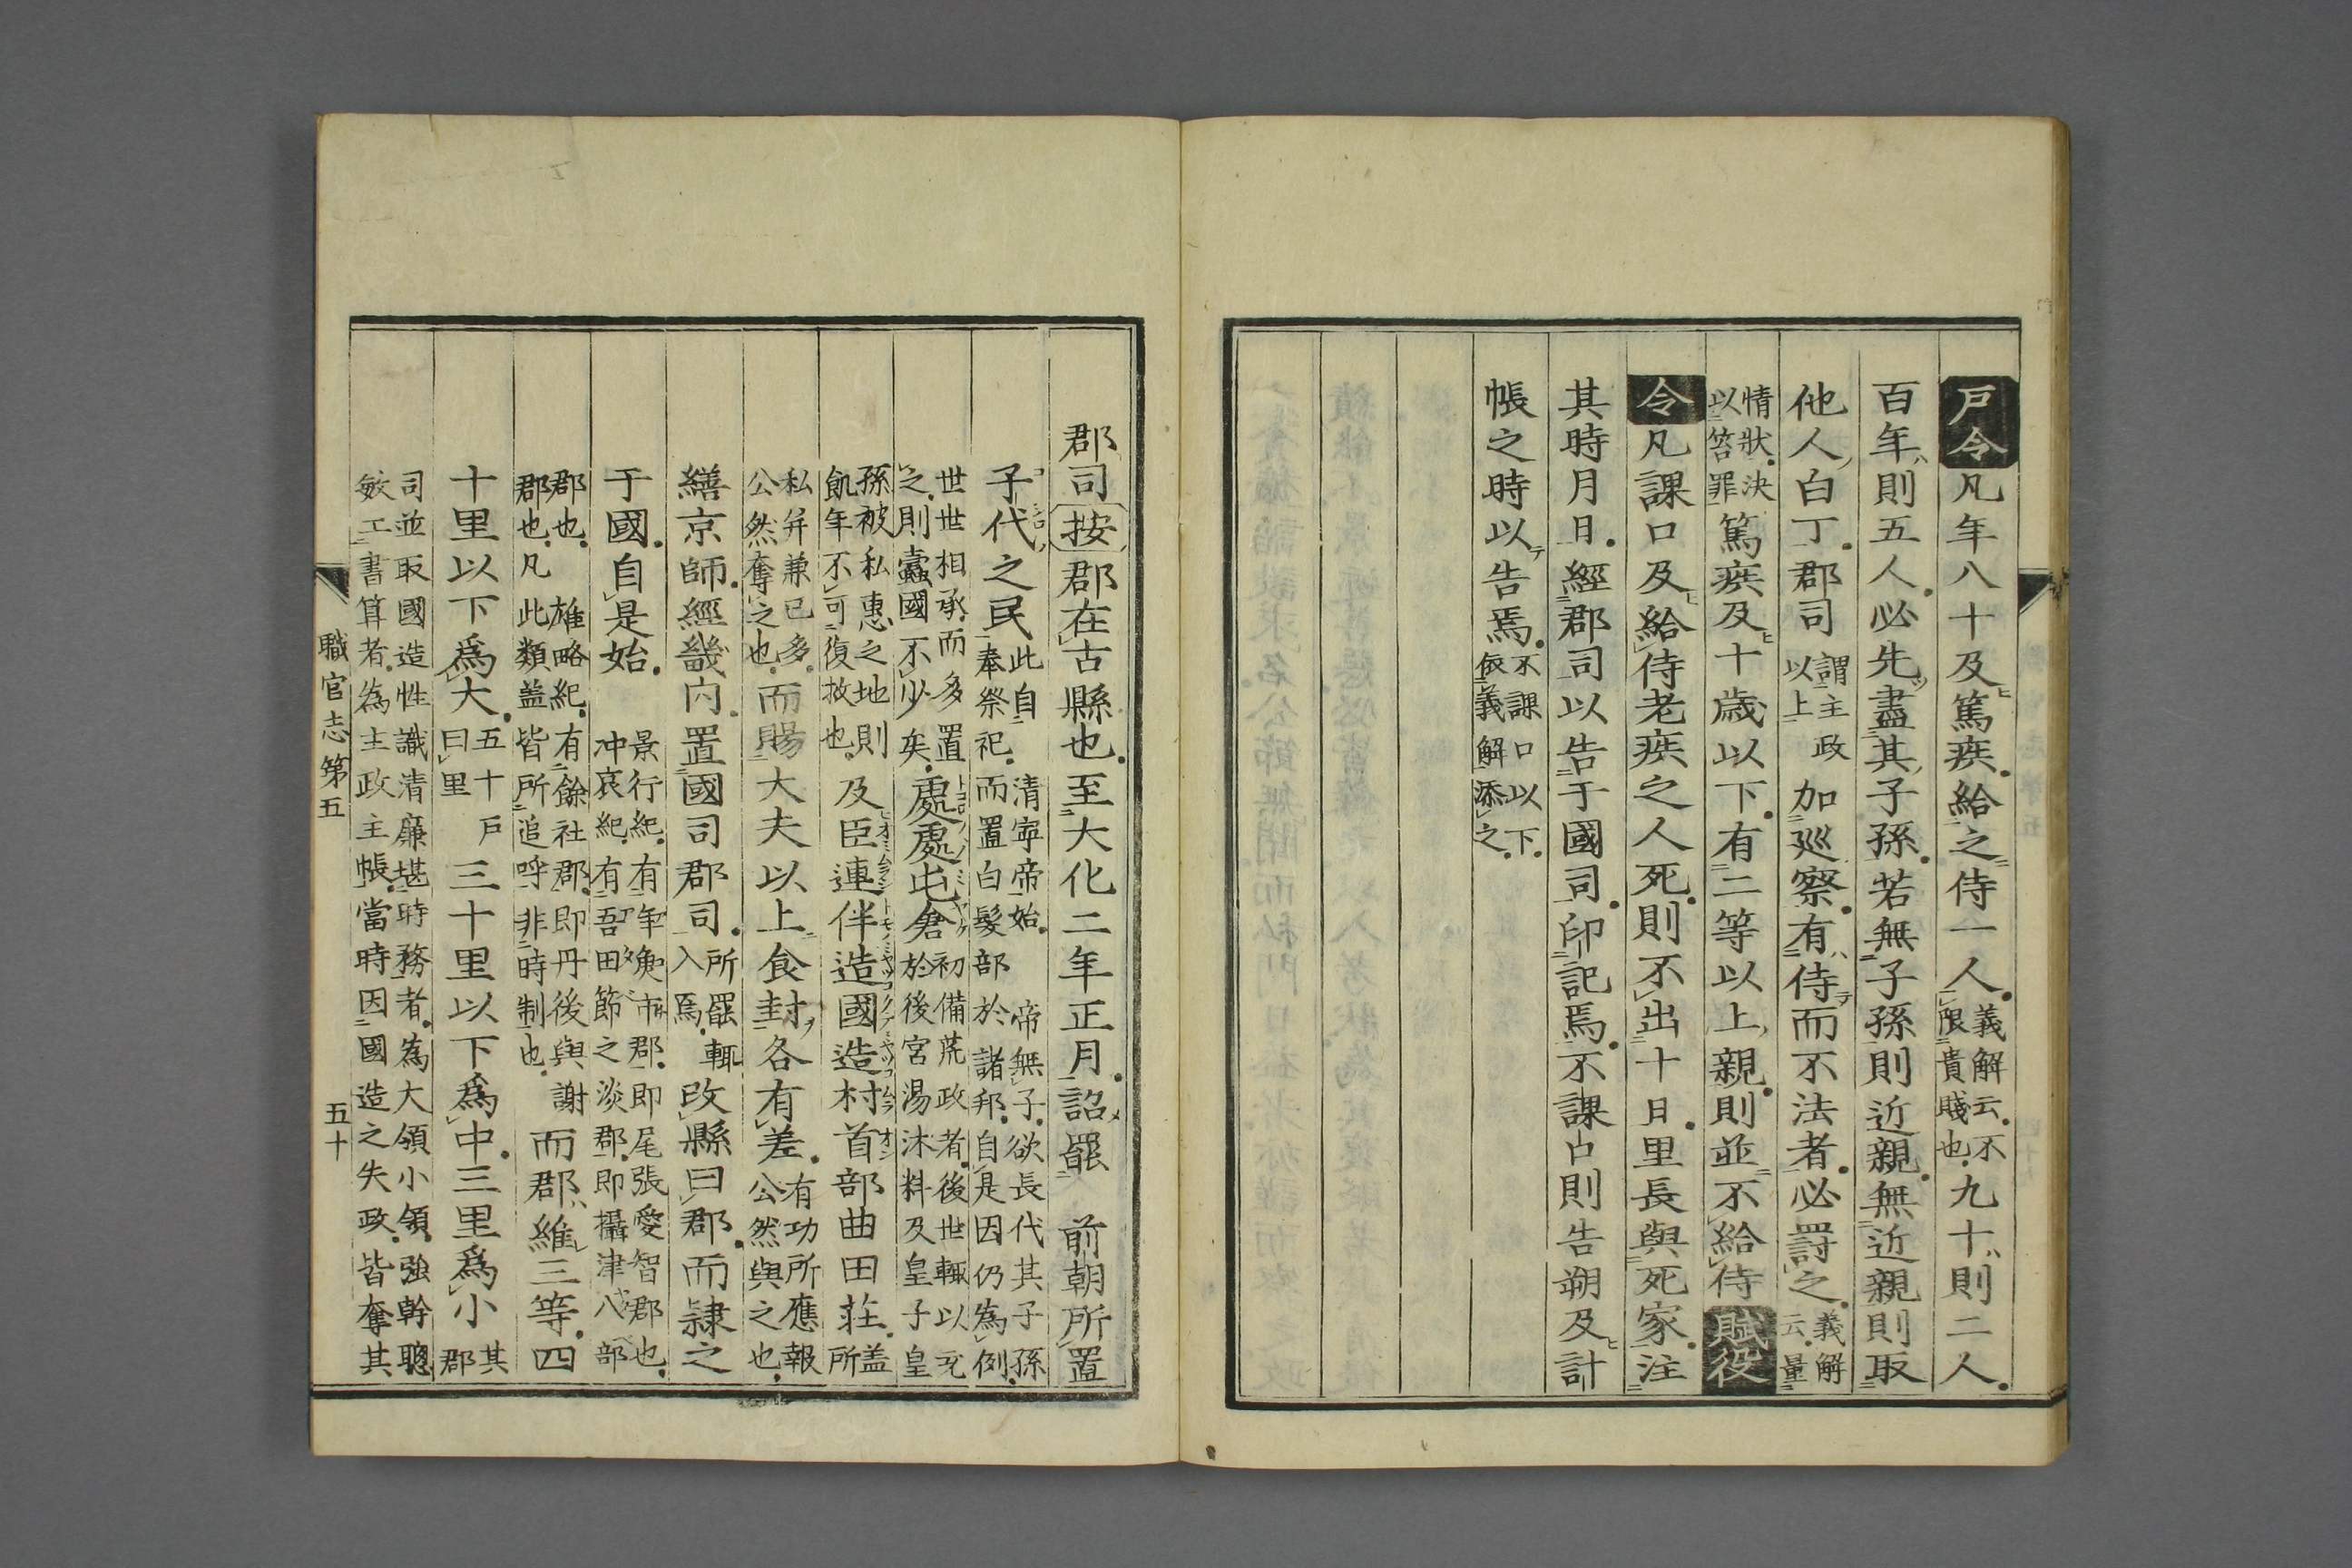 戸令凡年八十及篤疾給之侍一人義解云不限貴賤也九十則二人
百年則五人必先盡其子孫若無子孫則近親無近親則取
他人白丁郡司謂主政以上加巡察有侍而不法者必罸之義解云量
情狀決以笞罪篤疾及十歳以下有二等以上親則並不給侍賦役
令凡課口及給侍老疾之人死則不出十日里長與死家注
其時月日經郡司以告于國司印記焉不課口則告朔及計
帳之時以告焉不課口以下依義解添之
郡司按郡在古縣也至大化二年正月詔罷前朝所置
子代之民此自清寧帝始帝無子欲長代其子孫奉祭祀而置白髮部於諸邦自是因仍為例
世世相承而多置之則蠹國不少矣處處屯倉初備荒政者後世輙以充於後宮湯沐料及皇子皇
孫被私惠之地則飢年不可復救也及臣連伴造國造村首部曲田莊盖所
私并兼已多公然奪之也而賜大夫以上食封各有差有功所應報公然與之也
繕京師經畿内置國司郡司所罷輙入焉改縣曰郡而隷之
于國自是始景行紀有年魚市郡即尾張愛智郡也冲哀紀有吾田節之淡郡即攝津八部
郡也雄略紀有餘社郡即丹後與謝郡也凡此類盖皆所追呼非時制也而郡維三等四
十里以下爲大五十戸曰里三十里以下爲中三里爲小其郡
司並取國造性識清廉堪時務者為大領小領強幹聰敏工書算者為主政主帳當時因國造之失政皆奪其
職官志第五
五十